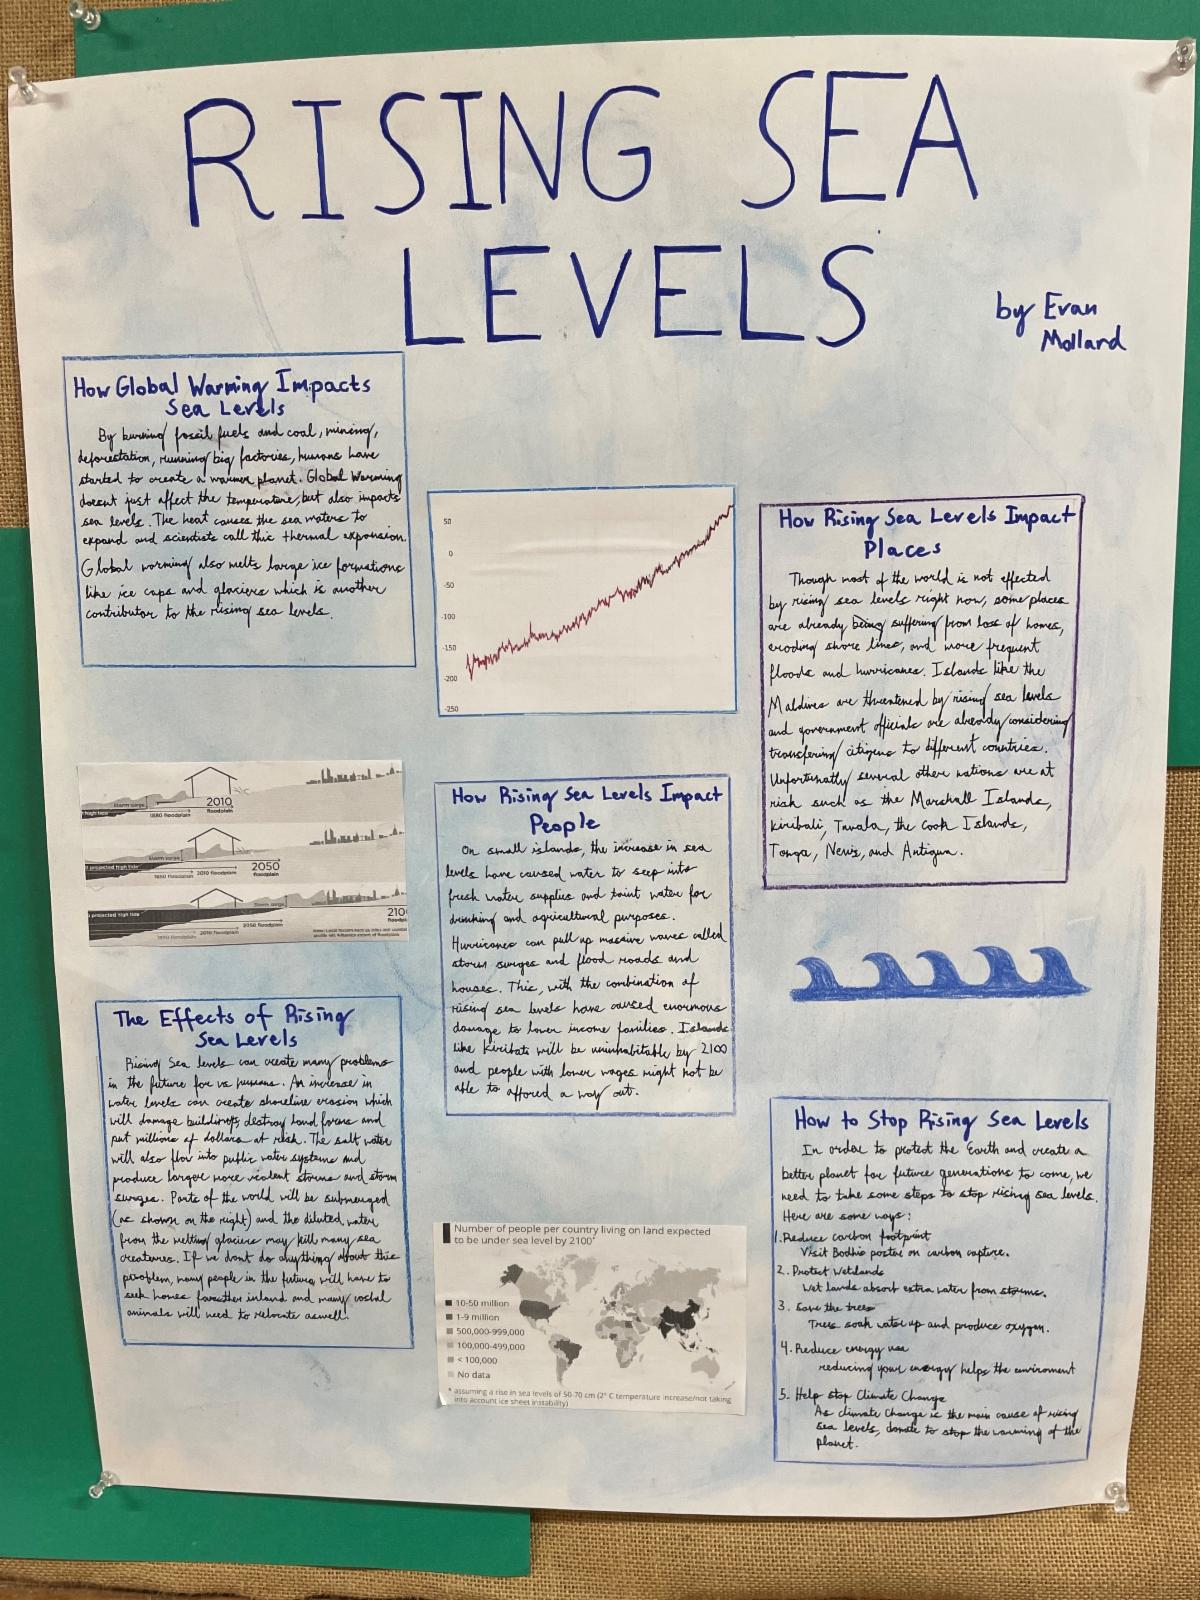 RISING SEA
LEVELS
by Evan
Mollard
How Global Warming Impacts
Sea Levels
By burning fossil fuels and coal, mining,
deforestation, running big factories, humans have
started to create a warmer planet. Global Warming
doesnt just affect the temperature, but also impacts
sea levels. The heat causes the sea waters to
expand and scientists call this thermal expansion.
Global worming also melts large ice formations
like ice caps and glaciers which is another
contributor to the rising sea levels.
50
0
-50
-100
-150
-200
-250
How Rising Sea Levels Impact
Places
Though most of the world is not effected
by rising sea levels right now, some places
are already being suffering from loss of homes,
eroding shore lines, and more frequent
floods and hurricanes. Islands like the
Maldives are threatened by rising sea levels
and government officials are already considering
transfering citizens to different countries.
Unfortunatly several other nations are at
risk such as the Marshall Islands,
Kiribati, Tuvala, the Cook Islands,
Tonga, Nevis, and Antigua.
storm surge
2010
floodplain
high tide
1880 floodplain
storm surge
2050
floodplain
projected high tide
1880 floodplain
2010 floodplain
storm surge
projected high tide
210
floodpl
2050 floodplain
2010 floodplain
How Rising Sea Levels Impact
People
On small islands, the increase in sea
levels have caused water to seep into
fresh water supplies and taint water for
drinking and agricultural purposes.
Hurricanes can pull up massive waves called
storm surges and flood roads and
houses. This, with the combination of
rising sea levels have caused enormous
damage to lower income families. Islands
like Kiribati will be uninhabitable by 2100
and people with lower wages might not be
able to afford a way out.
The Effects of Rising
Sea Levels
Rising Sea levels can create many problems
in the future for us humans. An increase in
water levels can create shoreline erosion which
will damage buildings, destroy land forms and
put millions of dollars at risk. The salt water
will also flow into public water systems and
produce larger more violent storms and storm
surges. Parts of the world will be submerged
(as shown on the right) and the diluted water
from the melting glaciers may kill many sea
creatures. If we dont do anything about this
problem, many people in the future will have to
seek homes farther inland and many costal
animals will need to relocate aswell.
Number of people per country living on land expected
to be under sea level by 2100*
10-50 million
1-9 million
500,000-999,000
100,000-499,000
< 100,000
No data
* assuming a rise in sea levels of 50-70 cm (2° C temperature increase/not taking
into account ice sheet instability)
How to Stop Rising Sea Levels
In order to protect the Earth and create a
better planet for future generations to come, we
need to take some steps to stop rising sea levels.
Here are some ways:
1. Reduce carbon footprint
Visit Bodhis poster on carbon capture.
2. Protect Wetlands
Wet lands absorb extra water from storms.
3. Save the trees
Trees soak water up and produce oxygen.
4. Reduce energy use
reducing your energy helps the enviroment
5. Help stop Climate Change
As climate Change is the main cause of rising
sea levels, donate to stop the warming of the
planet.